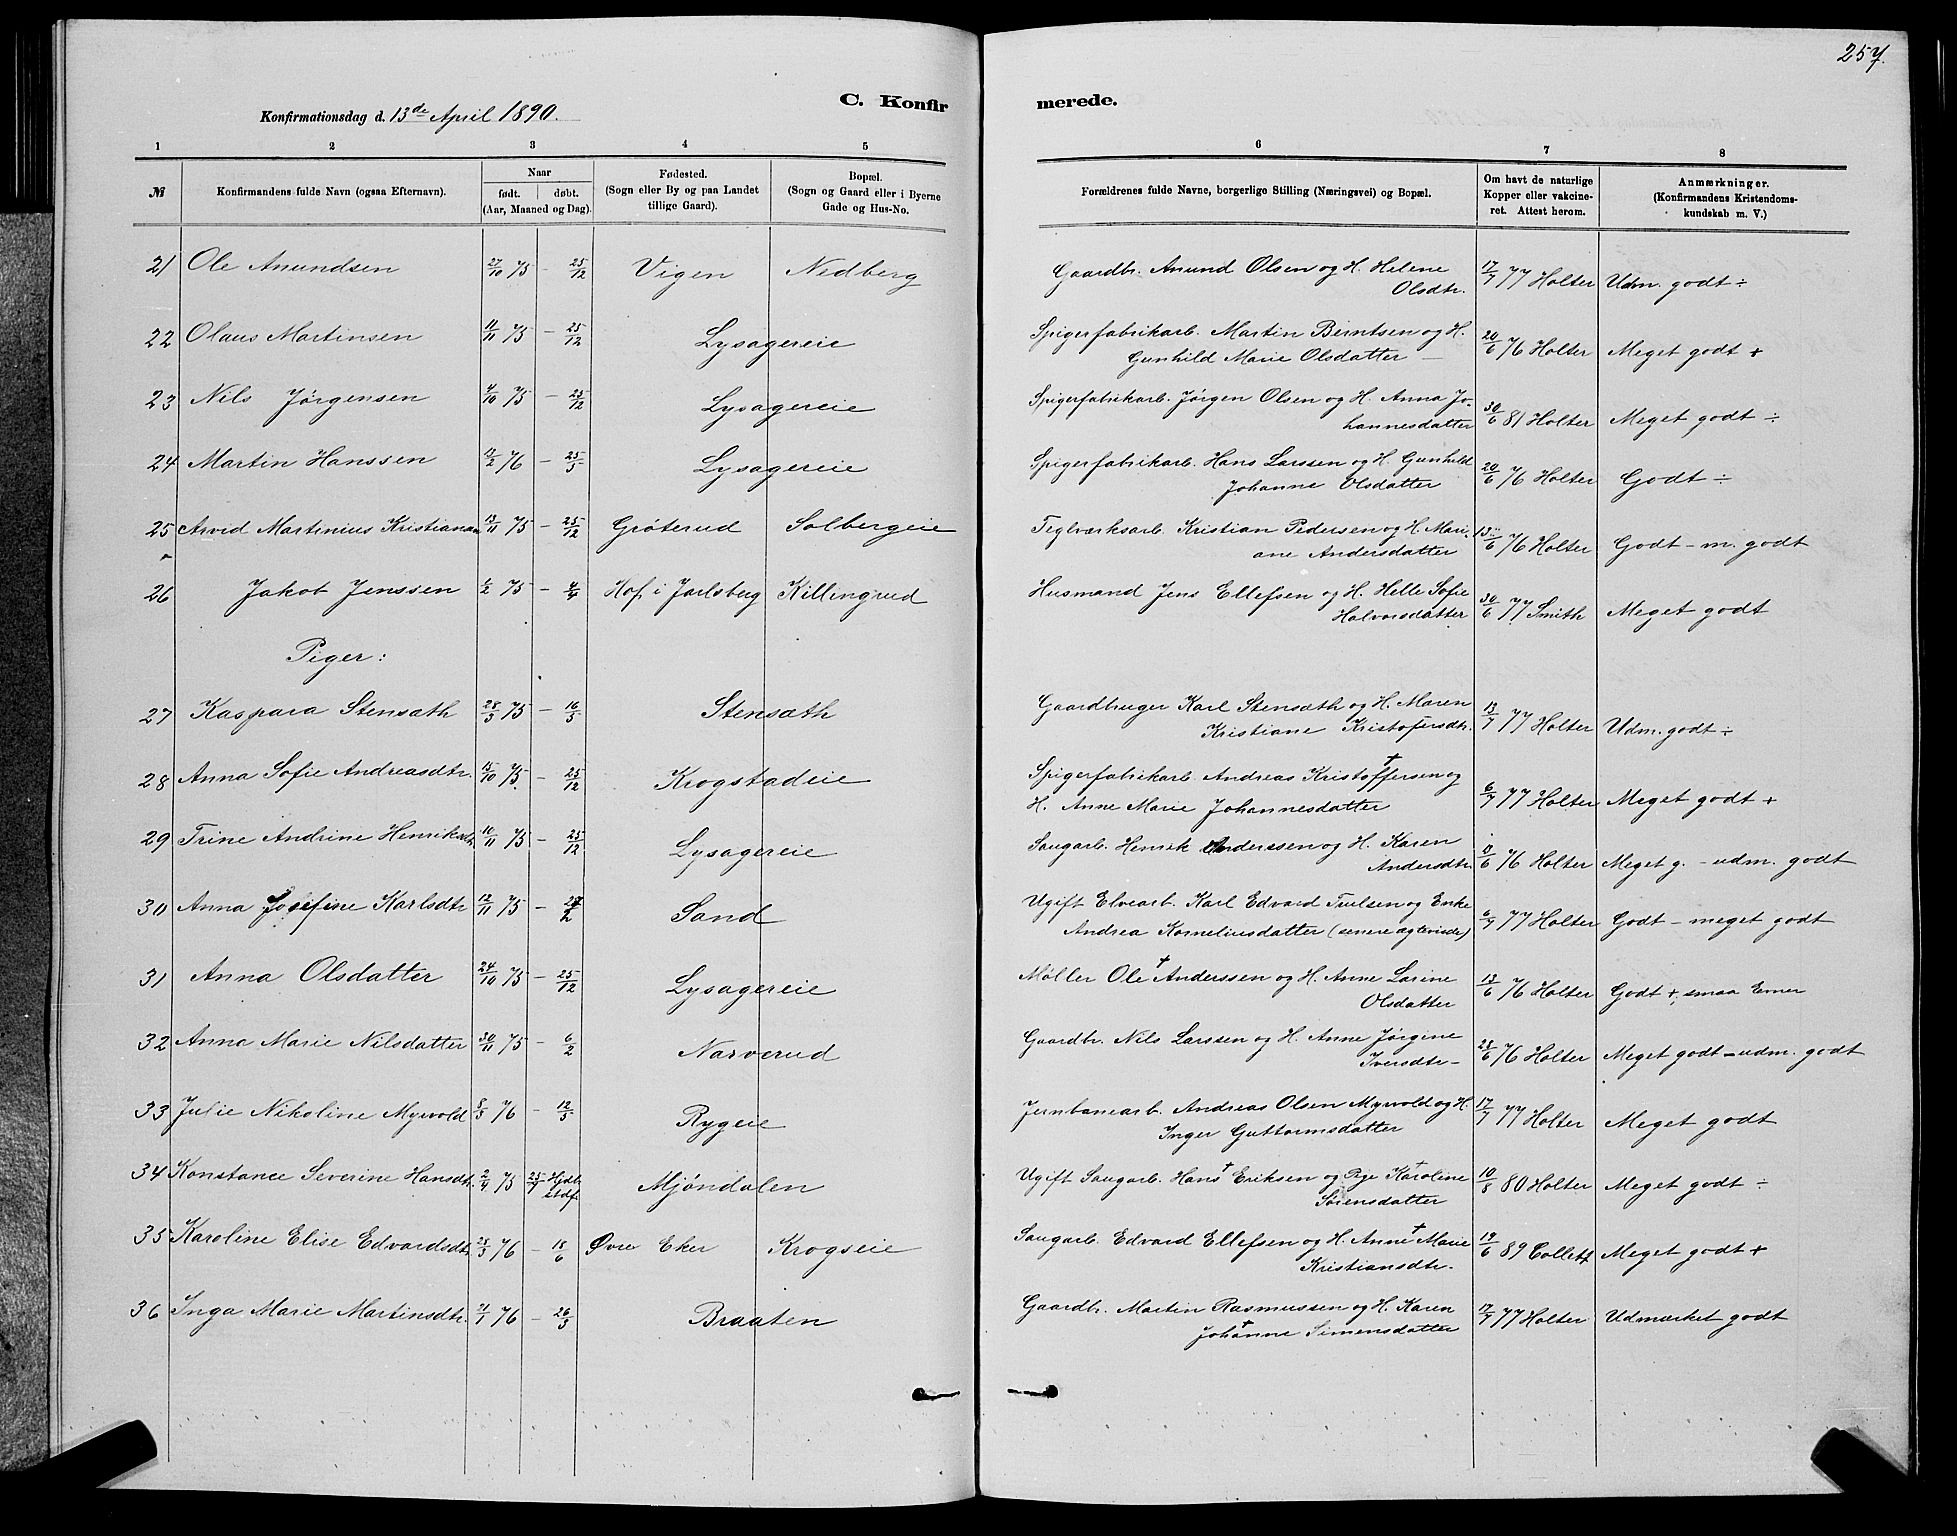 257.
C. Konfir
merede.
Konfirmationsdag d. 13de April 1890.
1 2 3 4 5 6 7 8
№ Konfirmandens fulde Navn (ogsaa Efternavn). Naar født. døbt. (Aar, Maaned og Dag). Fødested. (Sogn eller By og paa Landet tillige Gaard). Bopæl. (Sogn og Gaard eller i Byerne Gade og Hus-No. Forældrenes fulde Navne, borgerlige Stilling (Næringsvei) og Bopæl. Om havt de naturlige Kopper eller vakcineret. Attest herom. Anmærkninger. (Konfirmandens Kristendomskundskab m. V.)
21 Ole Anundsen 27/10 75 – 25/12 Vigen Nedberg Gaardbr. Anund Olsen og H. Helene
Olsdtr. 17/7 77 Holter Udm. godt ÷
22 Olaus Martinsen 11/11 75 – 25/12 Lysagereie Spigerfabrikarb. Martin Berntsen og H.
Gunhild Marie Olsdatter – 20/6 76 Holter Meget godt +
23 Nils Jørgensen 4/10 75 – 25/12 Lysagereie Spigerfabrikarb. Jørgen Olsen og H. Anna Jo-
hannesdatter 30/6 81 Holter Meget godt ÷
24 Martin Hanssen /2 76 – 25/5 Lysagereie Spigerfabrikarb. Hans Larssen og H. Gunhild
Johanne Olsdatter 20/6 76 Holter Godt ÷
25 Arvid Martinius Kristiansen 13/11 75 – 25/12 Grøterud Solbergeie Teglværksarb. Kristian Pedersen og H. Mari-
ane Andersdatter 13/6 76 Holter Godt – m. godt
26 Jakob Jenssen /2 75 – 4/4 Hof i Jarlsberg Killingrud Husmand Jens Ellefsen og H. Helle Sofie
Halvorsdatter 30/6 77 Smith Meget godt
Piger:
27 Kaspara Stensæth 28/3 75 – 16/5 Stensæth Gaardbruger Karl Stensæth og H. Maren
Kristiane Kristofersdtr. 13/7 77 Holter Udm. godt ÷
28 Anna Sofie Andreasdtr. 15/10 75. – 25/12 Krogstadeie Spigerfabrikarb. Andreas Kristoffersen † og
H. Anne Marie Johannesdatter 6/7 77 Holter Meget godt +
29 Trine Andrine Henriksdtr. 10/11 75 – 25/12 Lysagereie Saugarb. Henrik Anderssen og H. Karen
Andersdtr. /6 76 Holter Meget g. – udm. godt
30 Anna Josefine Karlsdtr 12/11 75 – 27/2 Sand Ugift Elvearb. Karl Edvard Truelsen og Enke
Andrea Korneliusdatter (senere ægtevi) 6/7 77 Holter Godt – meget godt
31 Anna Olsdatter 24/10 75 – 25/12 Lysagereie Møller Ole † Anderssen og H. Anne Larine
Olsdatter 13/6 76 Holter Godt +, smaa Evner
32 Anna Marie Nilsdatter 30/11 75 – 6/2 Narverud Gaardbr. Nils Larssen og H. Anne Jørgine
Iversdtr – 23/6 76 Holter Meget godt – udm. godt
33 Julie Nikoline Myrvold 8/3 76 – 12/5 Rygeie Jernbanearb. Andreas Olsen Myrvold og H.
Inger Guttormsdatter 17/7 77 Holter Meget godt
34 Konstance Severine Hansdtr. 2/4 75 25/7 Hjdb. stdf. Mjøndalen Ugift Saugarb. Hans † Eriksen og Pige Karoline †
Sørensdatter 10/8 80 Holter Meget godt ÷
35 Karoline Elise Edvardsdtr. 28/3 76 – 18/6 Øvre Eker Krogseie Saugarb. Edvard Ellefsen og H. Anne † Marie
Kristiansdtr. 19/6 89 Collett Meget godt +
36 Inga Marie Martinsdtr. 21/1 76 – 26/3 Braaten Gaardbr. Martin Rasmussen og H. Karen
Johanne † Simensdatter 17/7 77 Holter Udmærket godt